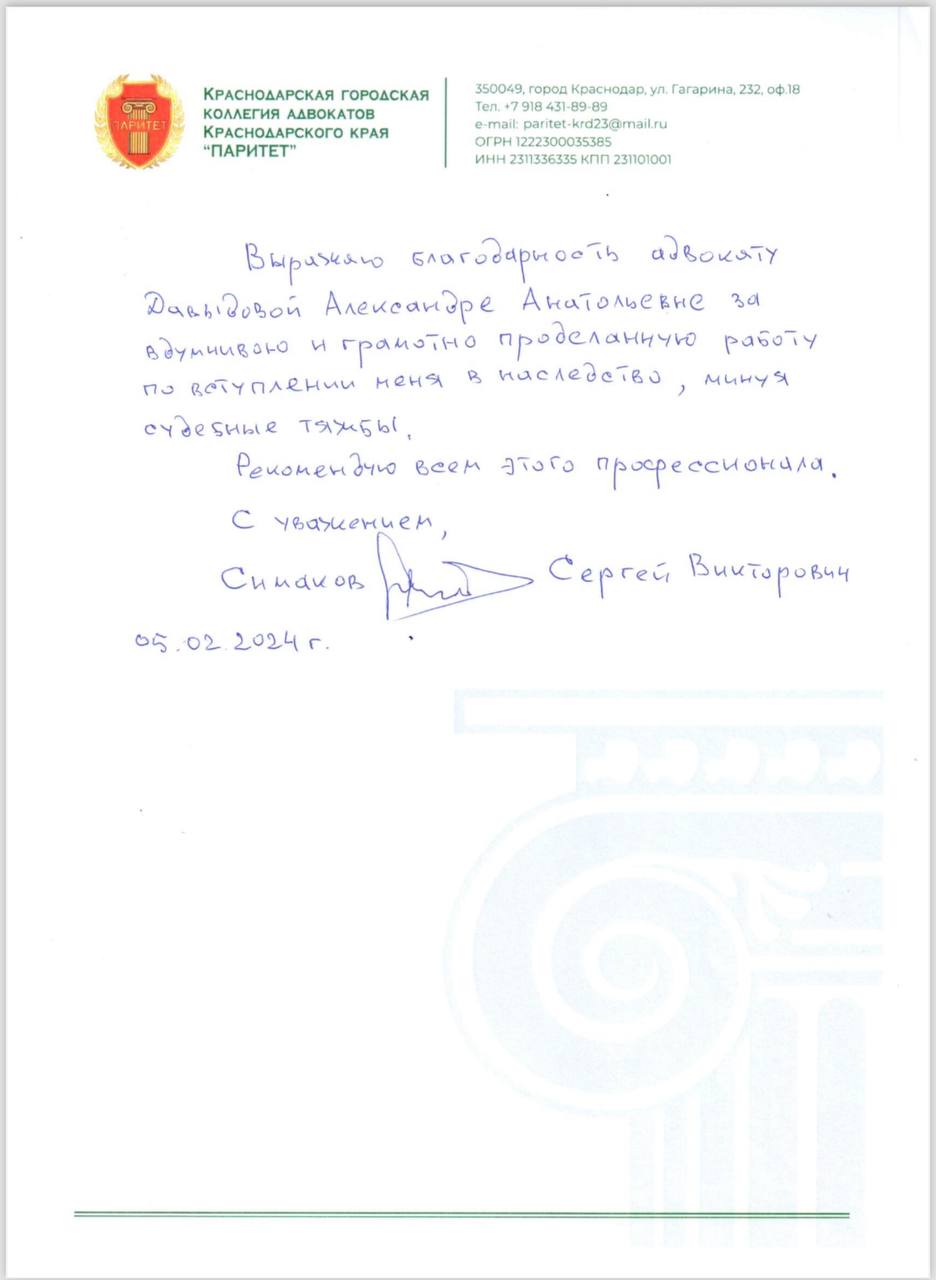 ПАРИТЕТ
КРАСНОДАРСКАЯ ГОРОДСКАЯ
КОЛЛЕГИЯ АДВОКАТОВ
КРАСНОДАРСКОГО КРАЯ
“ПАРИТЕТ”
350049, город Краснодар, ул. Гагарина, 232, оф.18
Тел. +7 918 431-89-89
e-mail: paritet-krd23@mail.ru
ОГРН 1222300035385
ИНН 2311336335 КПП 231101001
Выражаю благодарность адвокату
Давыдовой Александре Анатольевне за
вдумчивою и грамотно проделанную работу
по вступлении меня в наследство, минуя
судебные тяжбы.
Рекомендую всем этого профессионала.
С уважением,
Симаков Сергей Викторович
05.02.2024 г.